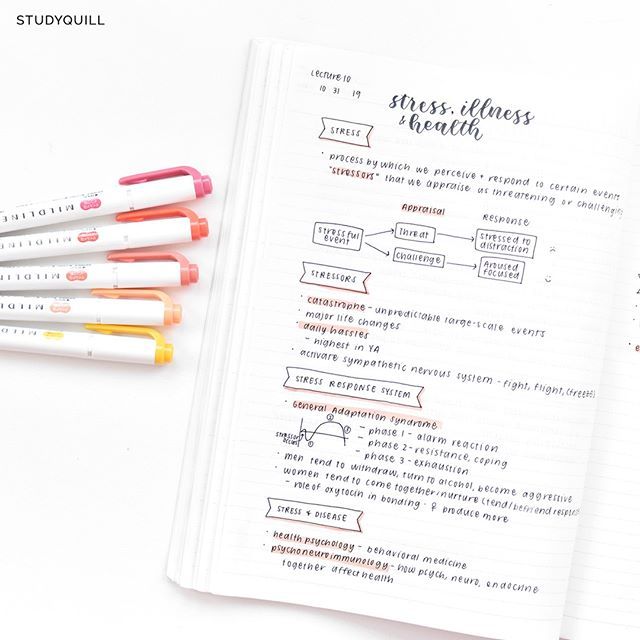 STUDYQUILL
Lecture 10
10 31 19
stress, illness
& health
STRESS
• process by which we perceive + respond to certain events
"stressors" that we appraise as threatening or challenging
Appraisal RESPONSE
stressful event
threat
stressed to distraction
challenge
Aroused focused
STRESSORS
• catastrophe - unpredictable large-scale events
• major life changes
• daily hassles
- highest in YA
• activate sympathetic nervous system - fight, flight, (freeze)
STRESS RESPONSE SYSTEM
• General Adaptation syndrome
stressor occurs
① ② ③
- phase 1 - alarm reaction
- phase 2 - resistance, coping
- phase 3 - exhaustion
• men tend to withdraw, turn to alcohol, become aggressive
• women tend to come together/nurture (tend/befriend response)
- role of oxytocin in bonding - ♀ produce more
STRESS & DISEASE
• health psychology - behavioral medicine
• psychoneuroimmunology - how psych, neuro, endocrine
together affect health
MILDLINER
MILDLINER
MILDLINER
MILDLINE
MILDLINE